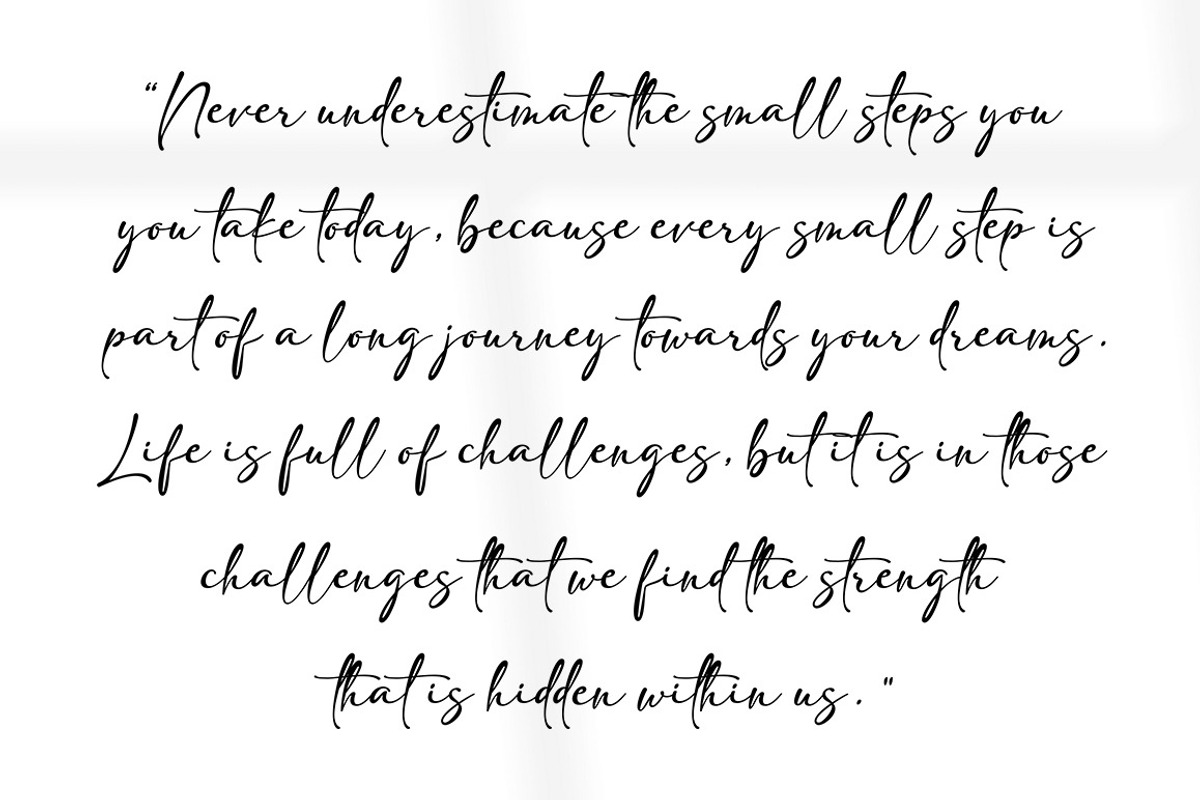 “Never underestimate the small steps you
you take today, because every small step is
part of a long journey towards your dreams.
Life is full of challenges, but it is in those
challenges that we find the strength
that is hidden within us."